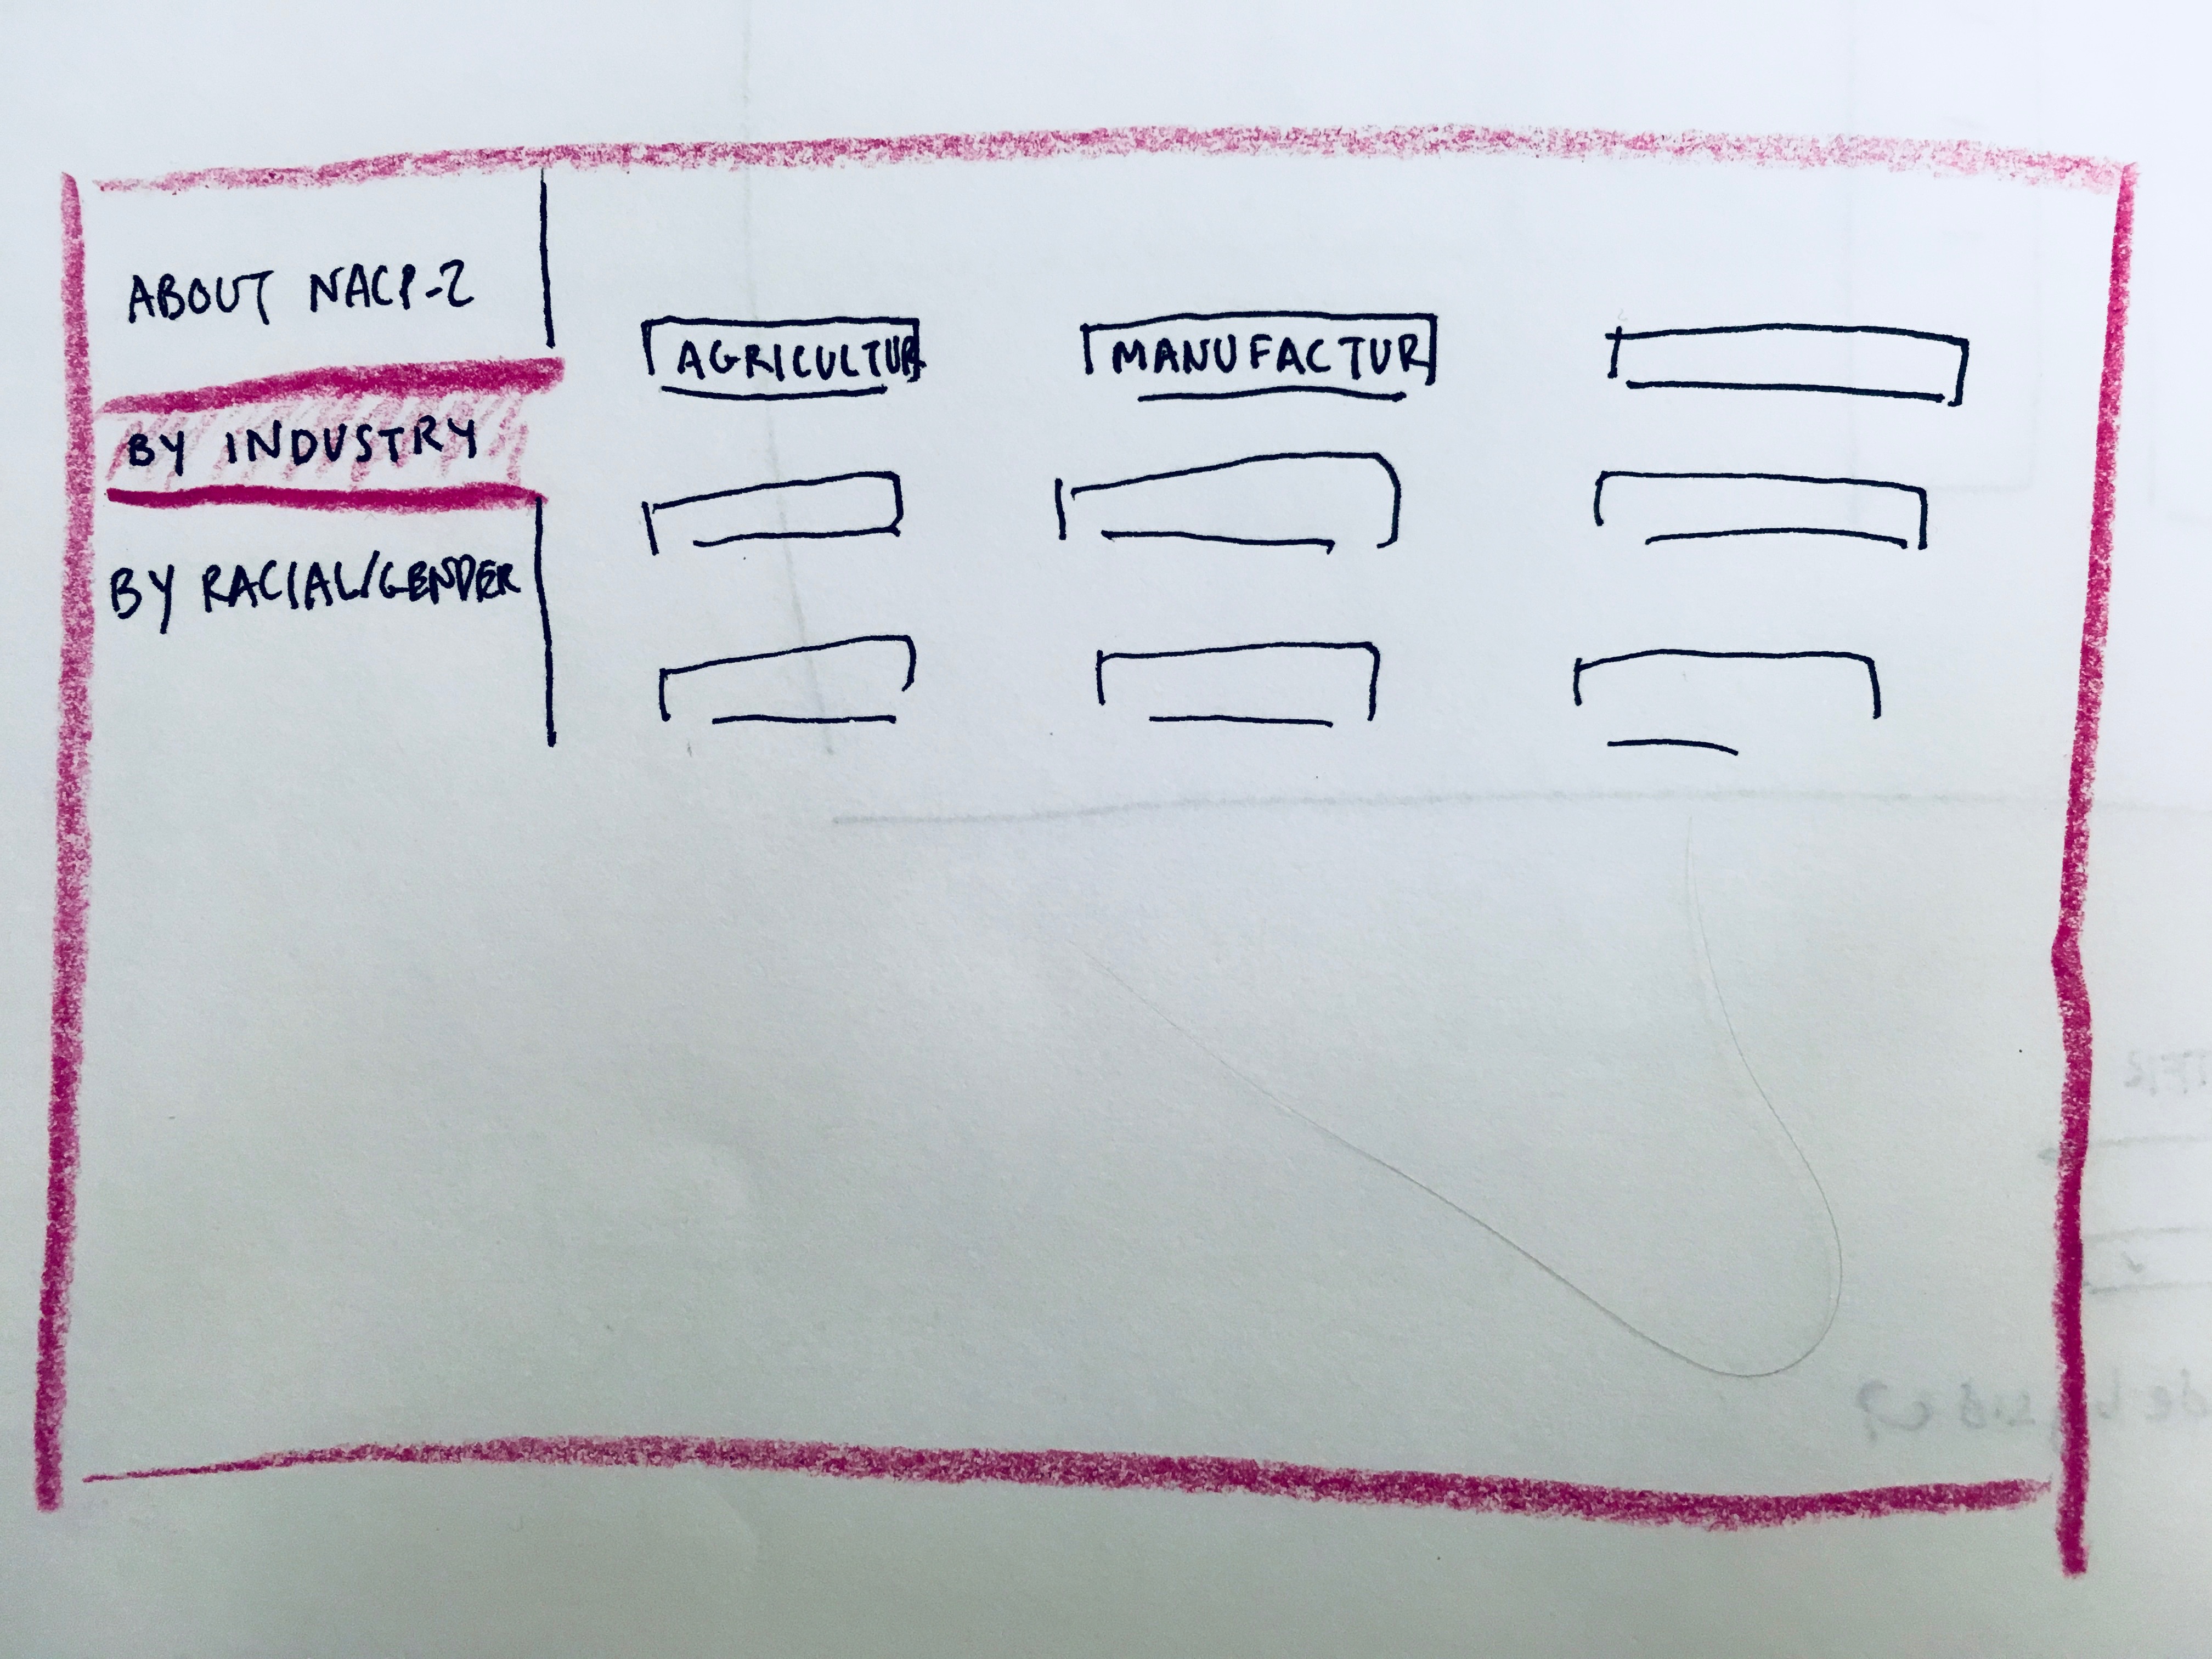 ABOUT NACP-2
BY INDUSTRY
BY RACIAL/GENDER
AGRICULTUR
MANUFACTUR